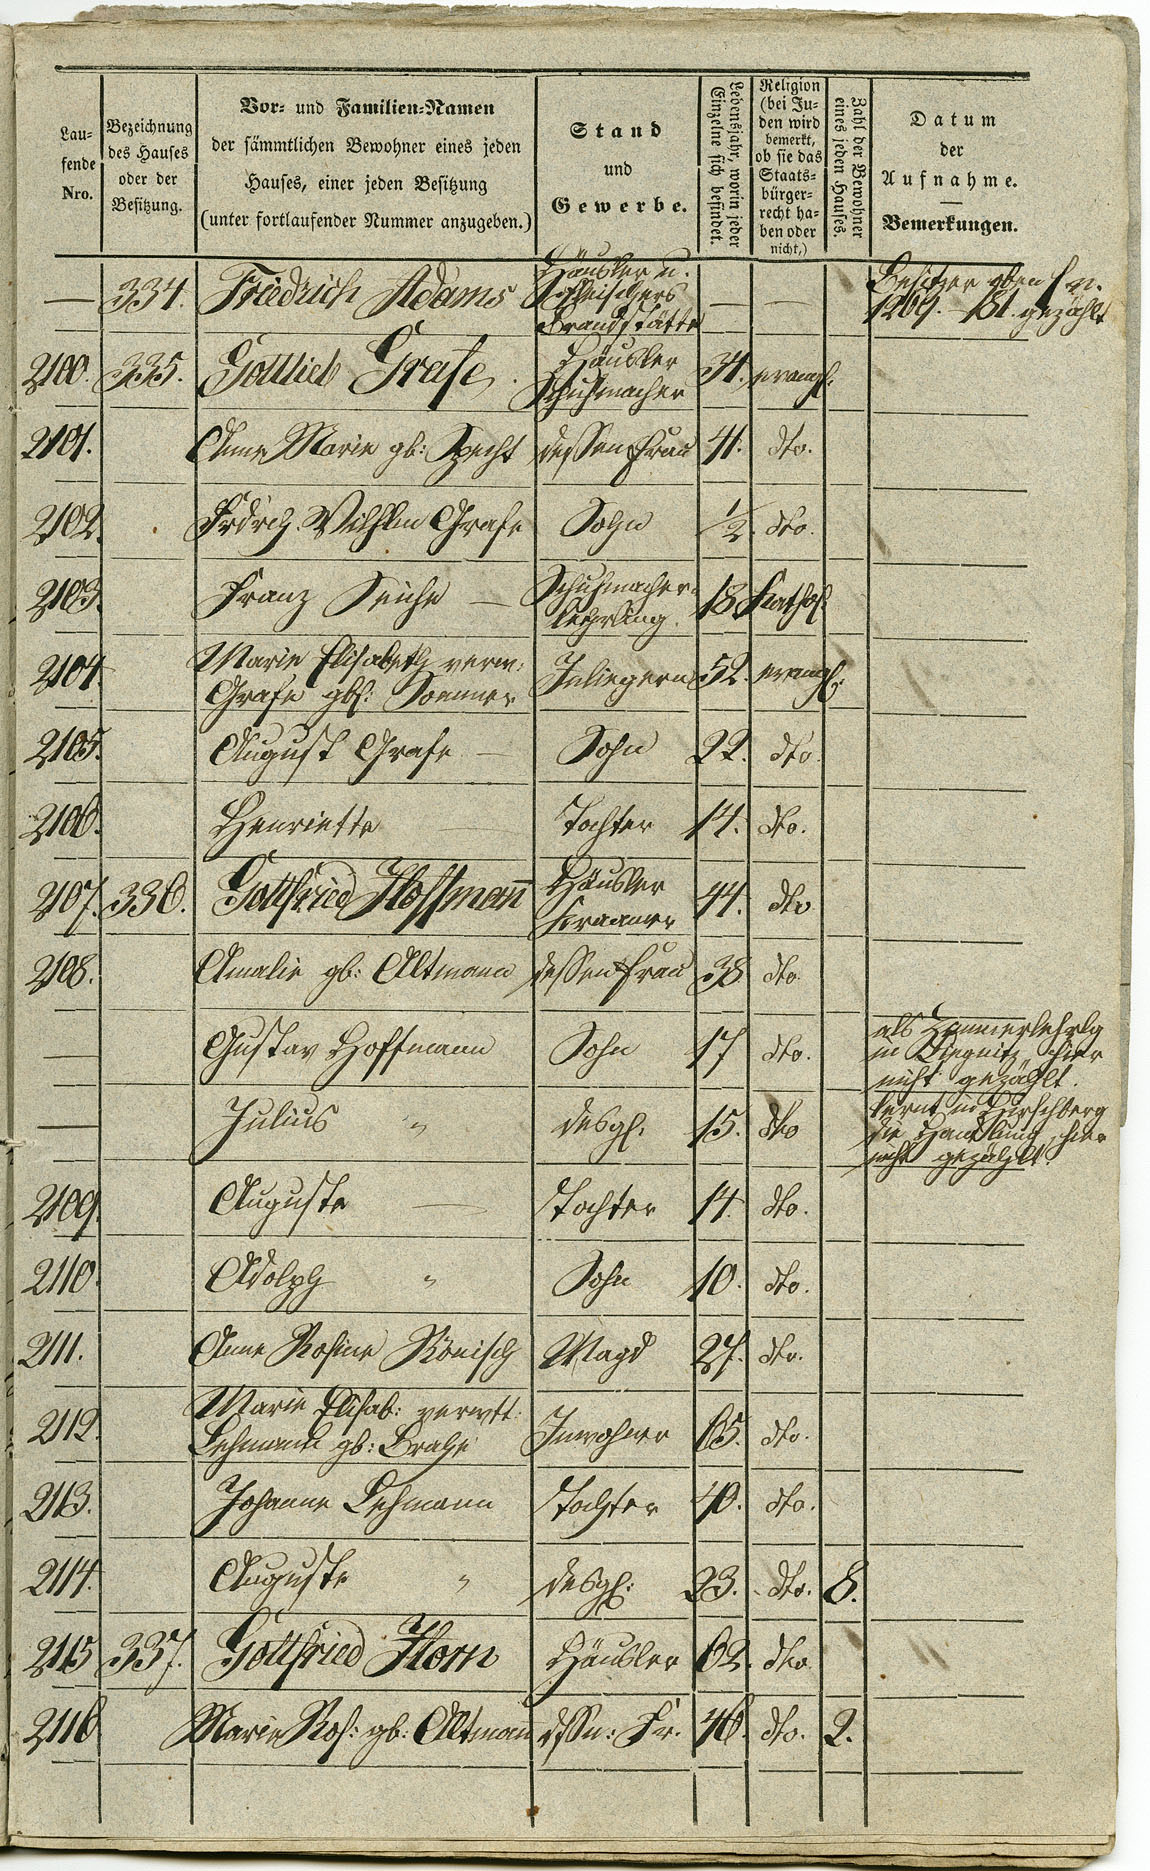 Lau-
fende
Nro.
Bezeichnung
des Hauses
oder der
Besitzung.
Vor- und Familien-Namen
der sämmtlichen Bewohner eines jeden
Hauses, einer jeden Besitzung
(unter fortlaufender Nummer anzugeben.)
Stand
und
Gewerbe.
Lebensjahr, worin jeder
Einzelne sich befindet.
Religion
(bei Ju-
den wird
bemerkt,
ob sie das
Staats-
bürger-
recht ha-
ben oder
nicht.)
Zahl der Bewohner
eines jeden Hauses.
Datum
der
Aufnahme.
Bemerkungen.
— 334. Friedrich Adams Häusler u. — — Besitzer oben
Brandstätte 1269. gezählt
2100. 335. Gottlieb Grafe. Häusler 34. evangl.
Schuhmacher
2101. Anne Marie gb: Specht dessen Frau 41. dto.
2102. Frdrch. Wilhlm Grafe Sohn ½. dto.
2103. Franz — Schuhmacher- 18 Kathol.
lehrling.
2104. Marie Elisabeth verw: Inliegerin 52. evangl.
Grafe gb: Sommer
2105. August Grafe — Sohn 22. dto.
2106. Henriette — Tochter 14. dto.
2107. 336. Gottfried Hoffmann Häusler 44. dto
Kraamer
2108. Amalie gb: Altmann dessen Frau 38 dto.
— Gustav Hoffmann Sohn 17 dto. als
in Liegnitz, hier
nicht gezählt.
— Julius " desgl. 15. dto lernt in Hirschberg
die Handlung, hier
nicht gezählt.
2109. Auguste — Tochter 14. dto.
2110. Adolph " Sohn 10. dto.
2111. Anne Rosine Könisch Magd 27. dto.
2112. Marie Elisab: verwtt: Inwohner 65. dto.
Lehmann gb:
2113. Johanne Lehmann Tochter 40. dto.
2114. Auguste " desgl: 23. dto. 8.
2115 337. Gottfried Horn Häusler 62. dto
2116 Marie Ros: gb: Altmann dssn: Fr. 46. dto. 2.